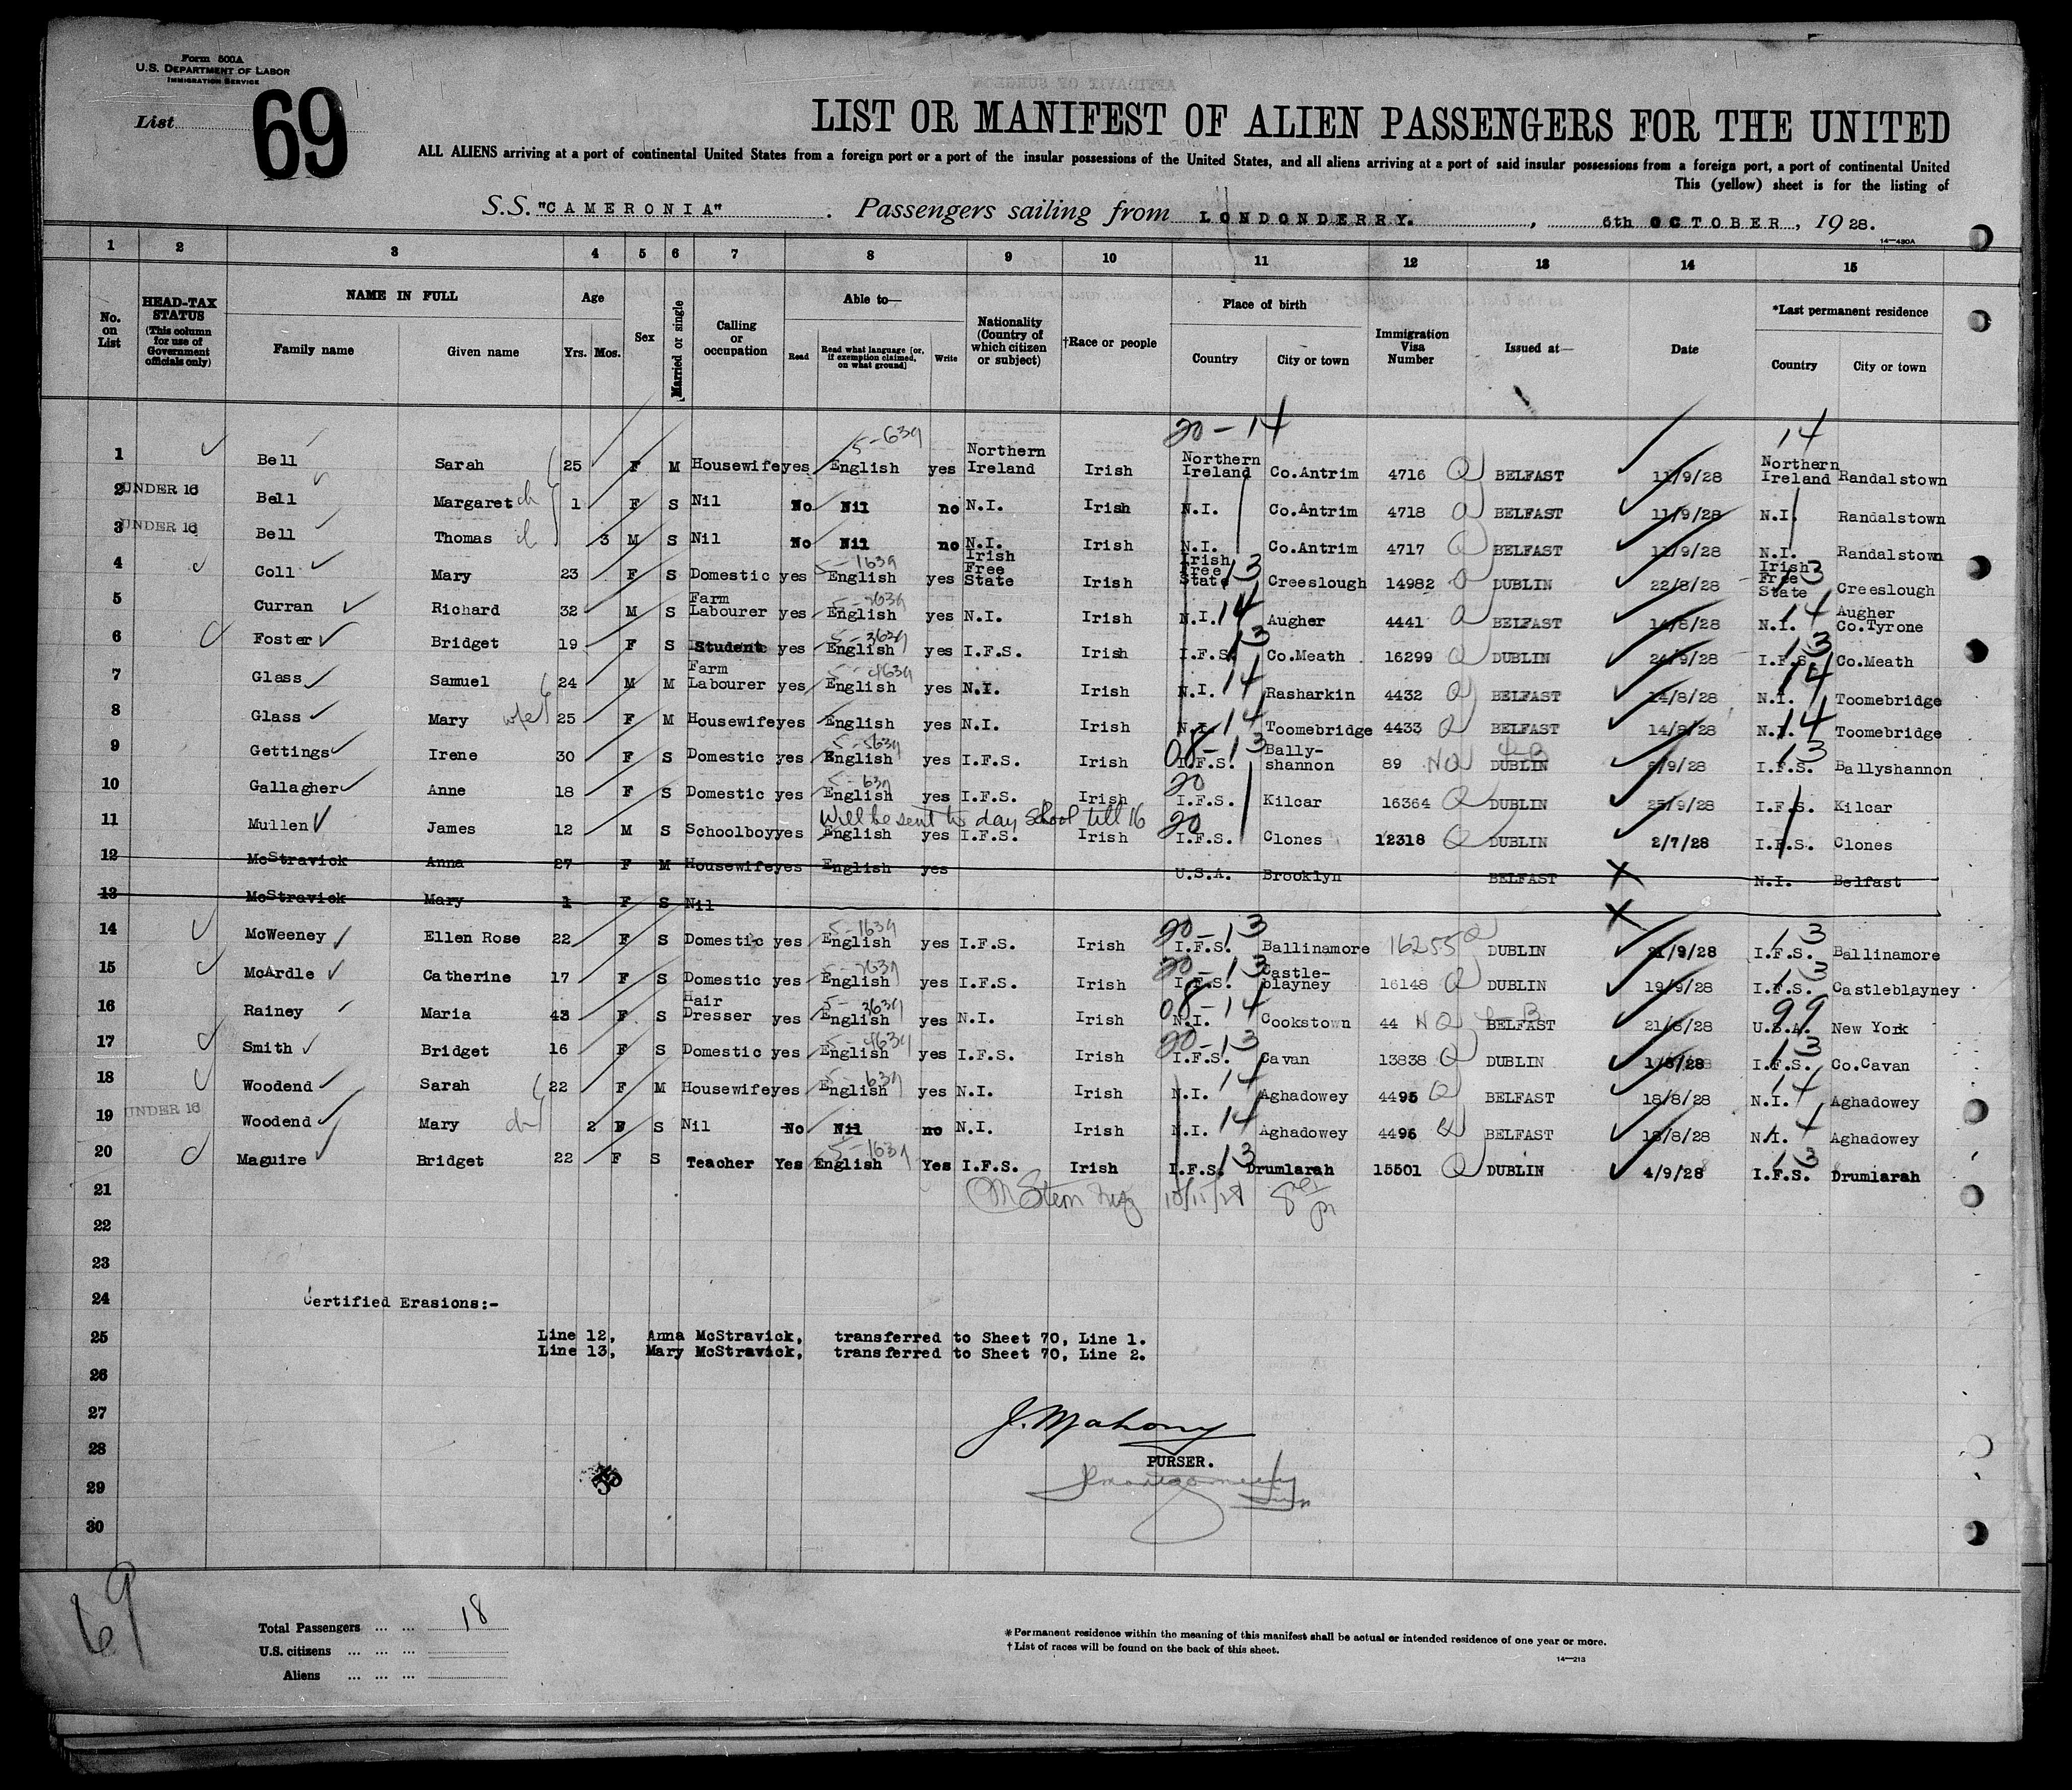 Form 500A
U.S. DEPARTMENT OF LABOR
IMMIGRATION SERVICE
List 69
LIST OR MANIFEST OF ALIEN PASSENGERS FOR THE UNITED
ALL ALIENS arriving at a port of continental United States from a foreign port or a port of the insular possessions of the United States, and all aliens arriving at a port of said insular possessions from a foreign port, a port of continental United
This (yellow) sheet is for the listing of
S.S. "CAMERONIA" . Passengers sailing from LONDONDERRY. , 6th OCTOBER , 1928.
14—430A
1 2 3 4 5 6 7 8 9 10 11 12 13 14 15
No. on List
HEAD-TAX STATUS (This column for use of Government officials only)
NAME IN FULL
Family name Given name
Age
Yrs. Mos.
Sex
Married or single
Calling or occupation
Able to—
Read Read what language [or, if exemption claimed, on what ground] Write
Nationality (Country of which citizen or subject)
†Race or people
Place of birth
Country City or town
Immigration Visa Number
Issued at—
Date
*Last permanent residence
Country City or town
5-639 20-14 14
1 Bell Sarah 25 F M Housewife yes English yes Northern Ireland Irish Northern Ireland Co.Antrim 4716 BELFAST 11/9/28 Northern Ireland Randalstown
2 UNDER 16 Bell Margaret ch 1 F S Nil No Nil no N.I. Irish N.I. Co.Antrim 4718 BELFAST 11/9/28 N.I. Randalstown
3 UNDER 16 Bell Thomas 3 M S Nil No Nil no N.I. Irish N.I. Co.Antrim 4717 BELFAST 11/9/28 N.I. Randalstown
4 Coll Mary 23 F S Domestic yes 5-1639 English yes Irish Free State Irish Irish Free State 13 Creeslough 14982 DUBLIN 22/8/28 Irish Free State 13 Creeslough
5 Curran Richard 32 M S Farm Labourer yes 5-2639 English yes N.I. Irish N.I. 14 Augher 4441 BELFAST 14/8/28 N.I. 14 Augher Co.Tyrone
6 Foster Bridget 19 F S Student yes 5-3639 English yes I.F.S. Irish I.F.S. 13 Co.Meath 16299 DUBLIN 24/9/28 I.F.S. 13 Co.Meath
7 Glass Samuel 24 M M Farm Labourer yes 5-4639 English yes N.I. Irish N.I. 14 Rasharkin 4432 BELFAST 14/8/28 N.I. 14 Toomebridge
8 Glass Mary wife 25 F M Housewife yes English yes N.I. Irish N.I. 14 Toomebridge 4433 BELFAST 14/8/28 N.I. 14 Toomebridge
9 Gettings Irene 30 F S Domestic yes 5-5639 English yes I.F.S. Irish 08-13 I.F.S. Bally-shannon 89 NQ 4-B DUBLIN /9/28 I.F.S. 13 Ballyshannon
10 Gallagher Anne 18 F S Domestic yes 5-639 English yes I.F.S. Irish 20 I.F.S. Kilcar 16364 DUBLIN 25/9/28 I.F.S. Kilcar
Will be sent to day School till 16
11 Mullen James 12 M S Schoolboy yes English yes I.F.S. Irish 20 I.F.S. Clones 12318 DUBLIN 2/7/28 I.F.S. Clones
12 McStravick Anna 27 F M Housewife yes English yes U.S.A. Brooklyn BELFAST X N.I. Belfast
13 McStravick Mary 1 F S Nil X
14 McWeeney Ellen Rose 22 F S Domestic yes 5-1639 English yes I.F.S. Irish 20-13 I.F.S. Ballinamore 16255 DUBLIN 21/9/28 I.F.S. 13 Ballinamore
15 McArdle Catherine 17 F S Domestic yes 5-2639 English yes I.F.S. Irish 20-13 I.F.S. Castle-blayney 16148 DUBLIN 19/9/28 I.F.S. 13 Castleblayney
16 Rainey Maria 43 F S Hair Dresser yes 5-3639 English yes N.I. Irish 08-14 N.I. Cookstown 44 NQ 4-B BELFAST 21/8/28 U.S.A. 99 New York
17 Smith Bridget 16 F S Domestic yes 5-4639 English yes I.F.S. Irish 20-13 I.F.S. Cavan 13838 DUBLIN 1/8/28 I.F.S. 13 Co.Cavan
18 Woodend Sarah 22 F M Housewife yes 5-639 English yes N.I. Irish N.I. 14 Aghadowey 4495 BELFAST 18/8/28 N.I. 14 Aghadowey
19 UNDER 16 Woodend Mary ch 2 F S Nil No Nil no N.I. Irish N.I. 14 Aghadowey 4496 BELFAST 18/8/28 N.I. 4 Aghadowey
20 Maguire Bridget 22 F S Teacher Yes 5-1639 English Yes I.F.S. Irish I.F.S. 13 Drumlarah 15501 DUBLIN 4/9/28 I.F.S. 13 Drumlarah
21 Stern 10/11/28
22
23
24 Certified Erasions:-
25 Line 12, Anna McStravick, transferred to Sheet 70, Line 1.
Line 13, Mary McStravick, transferred to Sheet 70, Line 2.
26
27 J. Mahony
28 PURSER.
29
30
69
Total Passengers ... ... 18
U.S. citizens ... ... ...
Aliens ... ... ...
*Permanent residence within the meaning of this manifest shall be actual or intended residence of one year or more.
†List of races will be found on the back of this sheet.
14—213